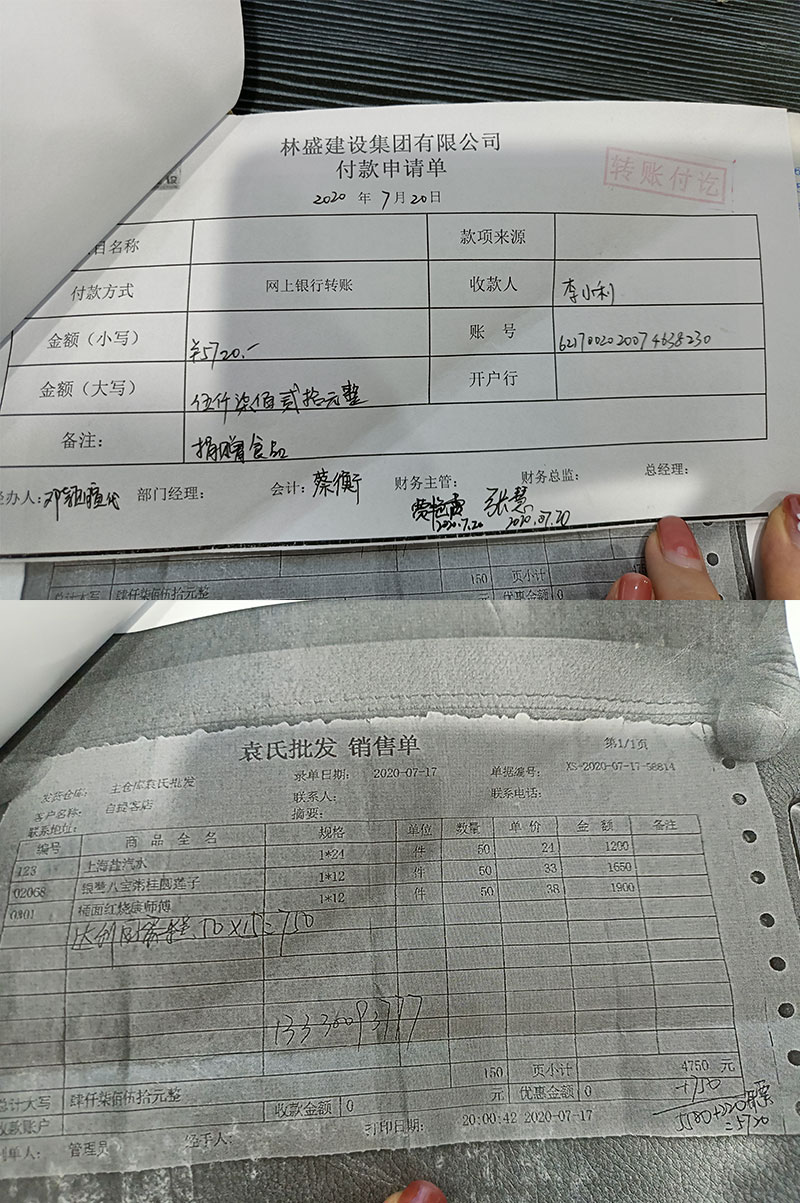 林盛建设集团有限公司
付款申请单
转账付讫
2020 年 7 月 20 日
目名称 款项来源
付款方式 网上银行转账 收款人 李小利
金额（小写） ¥5720.- 账 号 6217002020074638230
金额（大写） 伍仟柒佰贰拾元整 开户行
备注： 捐赠食品
办人： 部门经理： 会计：蔡衡 财务主管： 财务总监： 总经理：
2020.7.20 张慧 2020.07.20
150 页小计
总计大写 肆仟柒佰伍拾元整 元 优惠金额 0
袁氏批发 销售单 第1/1页
发货仓库： 主仓库袁氏批发 录单日期： 2020-07-17 单据编号： XS-2020-07-17-58814
客户名称： 自提客店 联系人： 联系电话：
联系地址： 摘要：
编号 商 品 全 名 规格 单位 数量 单 价 金 额 备注
123 上海盐汽水 1*24 件 50 24 1200
02068 银鹭八宝粥桂圆莲子 1*12 件 50 33 1650
0301 桶面红烧康师傅 1*12 件 50 38 1900
50×15=750
13330093777
150 页小计 4750 元
总计大写 肆仟柒佰伍拾元整 元 优惠金额 0
+750
收款账户 收款金额 0
5500+220 开票
=5720
制单人： 管理员 经手人： 打印日期： 20:00:42 2020-07-17